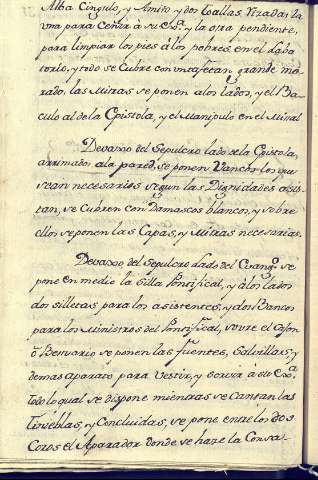 Alba Cingulo, y Amito y dos toallas rizadas la
una para Ceñir à su Exª. y la otra pendiente,
para limpiar los pies álos pobres, en el Laba
torio, y todo se Cubre con un tafetan grande mo-
rado, las Mitras se ponen alos lados, y el Ba-
culo al dela Epistola, y el Manipulo en el Misal
Devaxo del Sepulcro lado dela Epistola,
arrimados ala pared, se ponen Vancos los que
sean necesarios segun las Dignidades asis-
tan, se Cubren con Damascos blancos, y sobre
ellos se ponen las Capas, y Mitras necesarias.
Devaxo del Sepulcro lado del Evangº se
pone en medio la Silla Pontifical, y álos lados
dos silletas para los asistentes, y dos Bancos
para los Ministros del Pontifical, sovre el Cajon
ô Bestuario se ponen las fuentes, Salvillas, y
demas aparato para Vestir, y servir à su Exª
todo lo qual se dispone mientras se Cantan las
tinieblas, y Concluidas, se pone entre los dos
Coros el Aparador donde se haze la Consa-